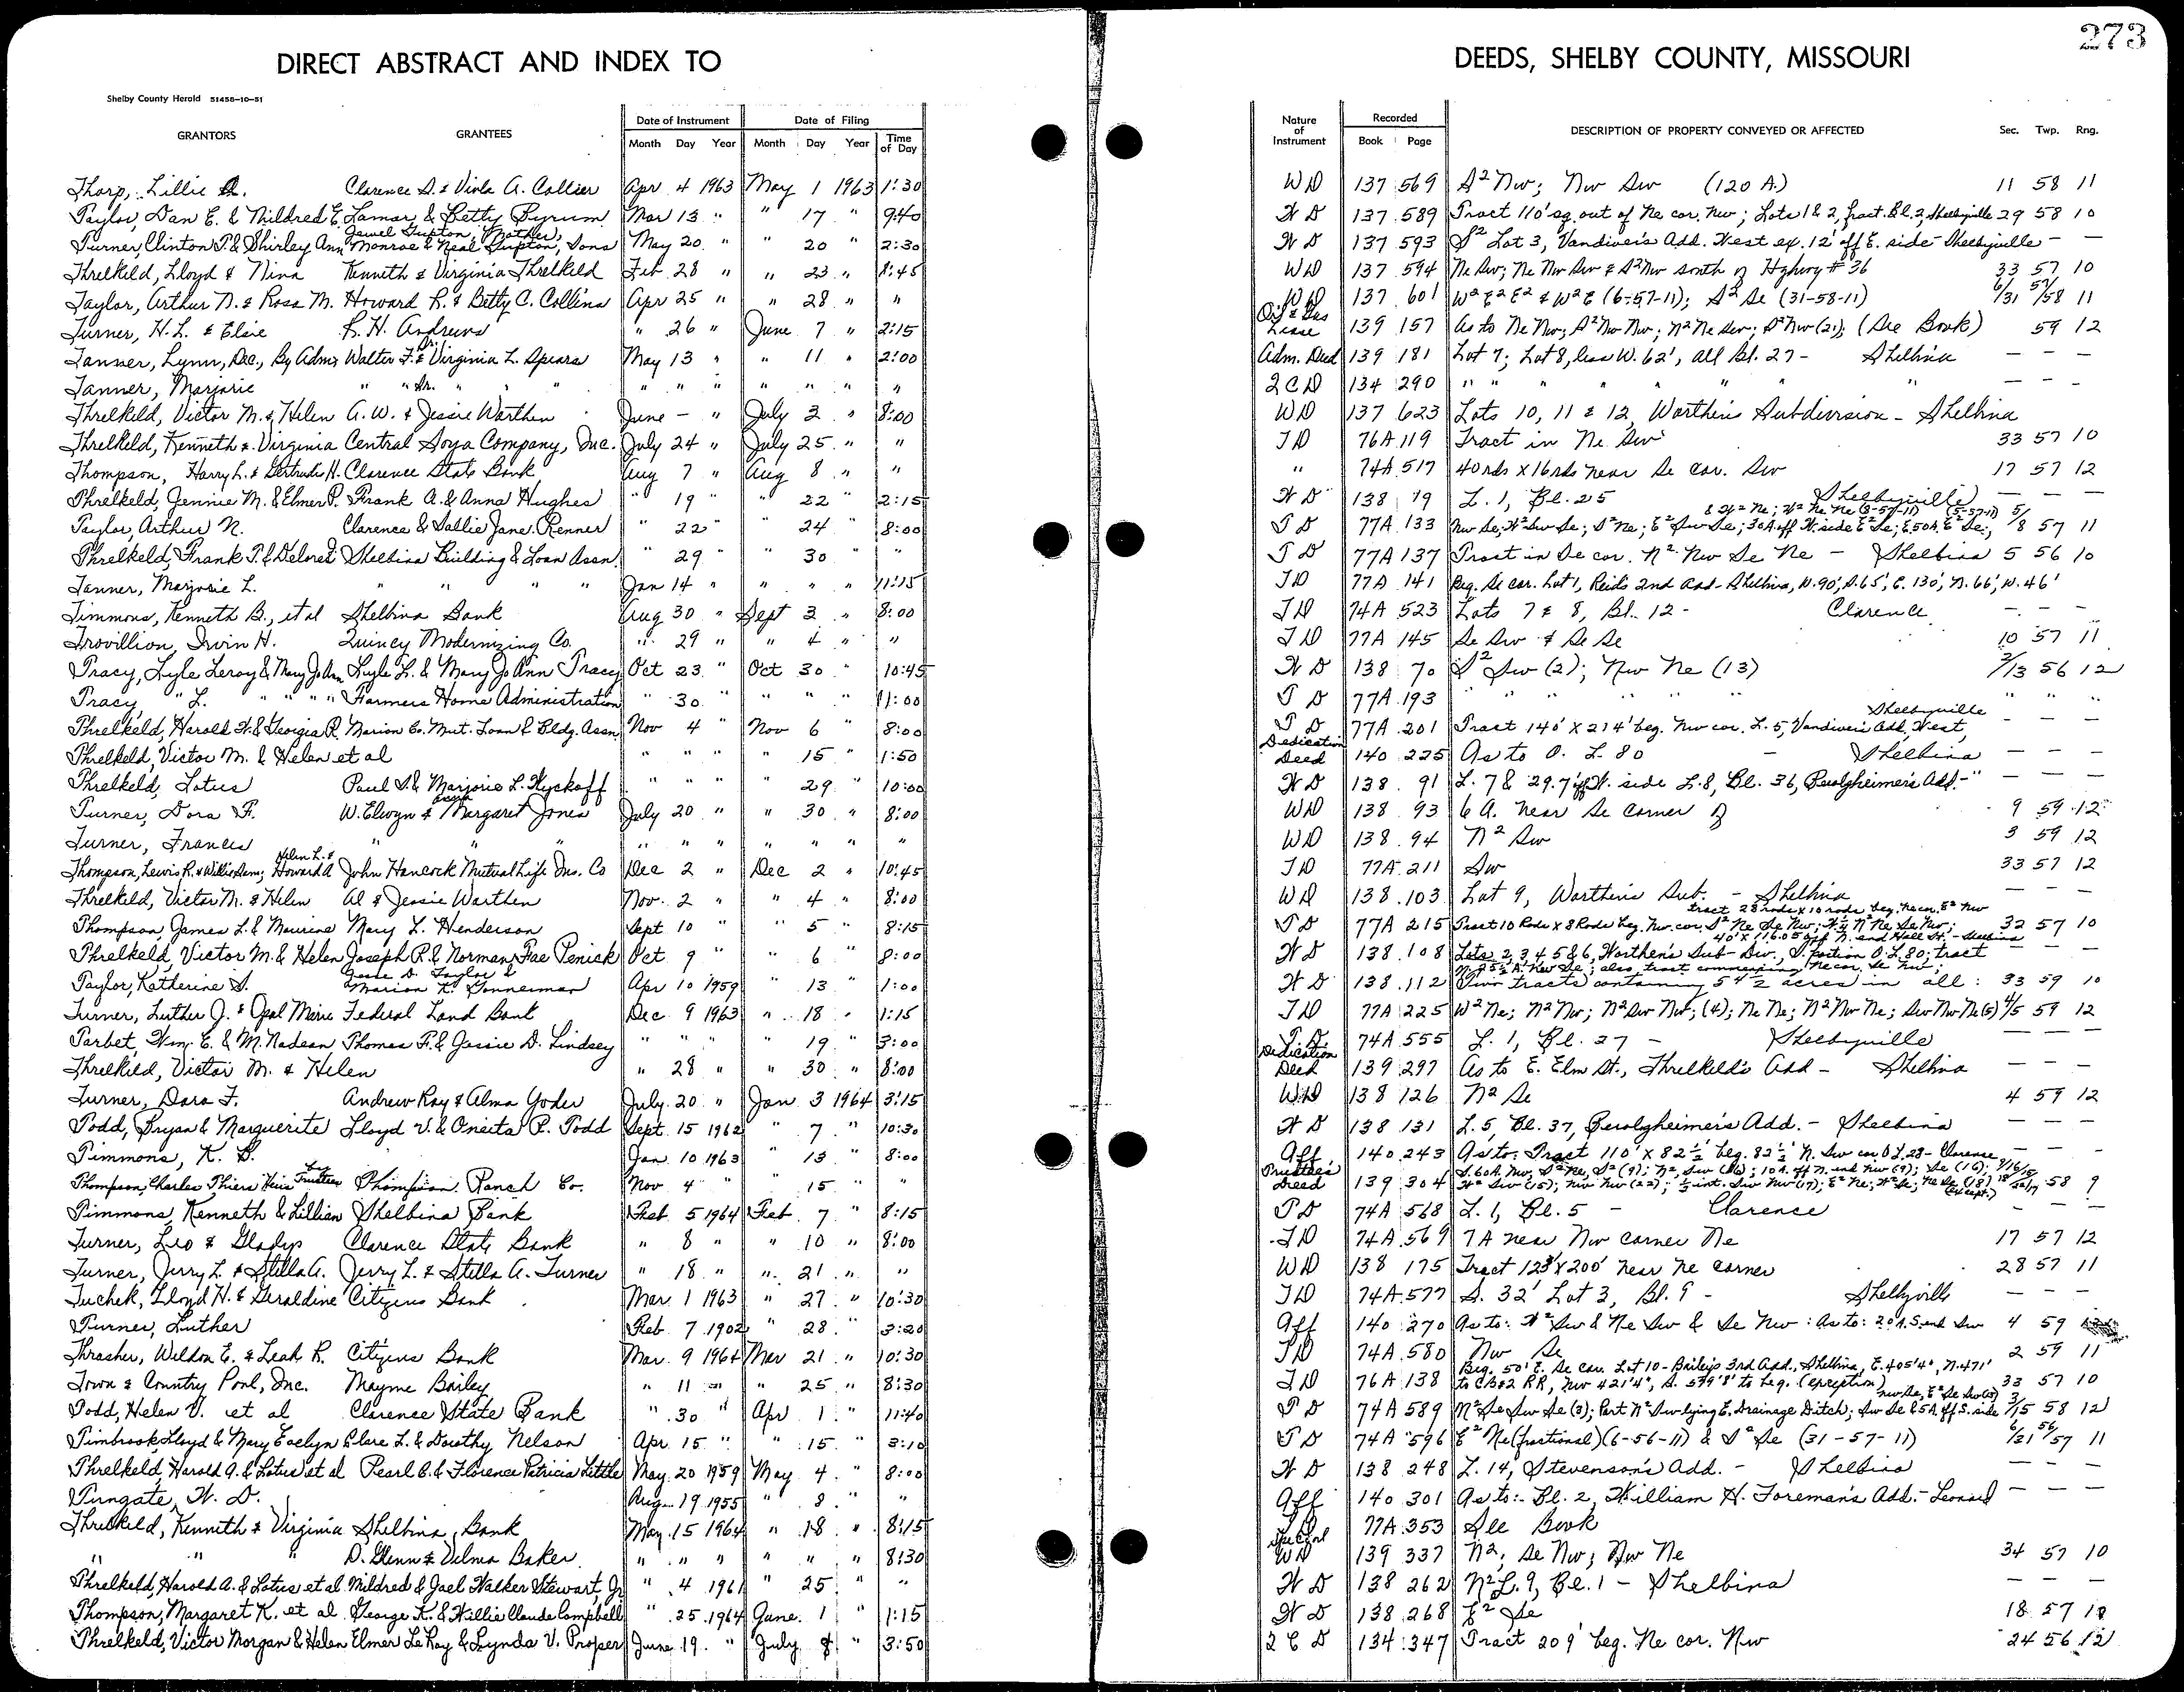 273
DIRECT ABSTRACT AND INDEX TO DEEDS, SHELBY COUNTY, MISSOURI
Shelby County Herald 51458-10-51
GRANTORS GRANTEES Date of Instrument Month Day Year Date of Filing Month Day Year Time of Day Nature of Instrument Recorded Book Page DESCRIPTION OF PROPERTY CONVEYED OR AFFECTED Sec. Twp. Rng.
Thorp, Lillie Clarence S. & Viola A. Collier Apr 4 1963 May 1 1963 1:30 WD 137 569 S² Nw; Nw Sw (120 A.) 11 58 11
Taylor, Dan E. & Mildred E. Lamar & Betty Byrum Mar 13 " " 17 " 9:40 WD 137 589 Tract 110' sq. out of Ne cor. Nw; Lots 1 & 2, fract. Bl. 2, Shelbyville 29 58 10
Turner, Clinton T. & Shirley Ann Jewel Gupton, Mother, Monroe & Neal Gupton, Sons May 20 " " 20 " 2:30 WD 137 593 S² Lot 3, Vandiver's Add. West ex. 12' off E. side - Shelbyville — —
Threlkeld, Lloyd & Nina Kenneth & Virginia Threlkeld Feb 28 " " 23 " 8:45 WD 137 594 Ne Sw; Ne Nw Sw & S² Nw south of Highway # 36 33 57 10
Taylor, Arthur N. & Rosa M. Howard R. & Betty C. Collins Apr 25 " " 28 " " WD 137 601 W² E² E² & W² E (6-57-11); S² Se (31-58-11) 6/31 57/58 11
Turner, H.L. & Elsie R. H. Andrews " 26 " June 7 " 2:15 Oil & Gas Lease 139 157 As to Ne Nw; S² Nw Nw; N² Ne Sw; S² Nw (21); (See Book) 59 12
Tanner, Lynn, Dec., By Admr Walter F. Jr. & Virginia L. Spears May 13 " " 11 " 2:00 Adm. Deed 139 181 Lot 7; Lot 8, less W. 62', all Bl. 27 - Shelbina — — —
Tanner, Marjorie " " Jr. " " " " " " " " " " " 2CD 134 290 " " " " " " " " — — —
Threlkeld, Victor M. & Helen A. W. & Jessie Warthen June - " July 2 " 8:00 WD 137 623 Lots 10, 11 & 12, Warthen's Subdivision - Shelbina
Threlkeld, Kenneth & Virginia Central Soya Company, Inc. July 24 " July 25 " " TD 76A 119 Tract in Ne Sw 33 57 10
Thompson, Harry L. & Gertrude H. Clarence State Bank Aug 7 " Aug 8 " " " 74A 517 40 rds x 16 rds near Se cor. Sw 17 57 12
Threlkeld, Jennie M. & Elmer P. Frank A. & Anna Hughes " 19 " " 22 " 2:15 WD 138 19 L. 1, Bl. 25 Shelbyville — — —
Taylor, Arthur N. Clarence & Sallie Jane Renner " 22 " " 24 " 8:00 TD 77A 133 Nw Se; W² Sw Se; S² Ne; E² Sw Se; 30A off W. side E² Se; E. 50A. E² Se; & W² Ne; W² Ne Ne (8-57-11) (5-57-11) 5/8 57 11
Threlkeld, Frank T. & Delores Shelbina Building & Loan Assn. " 29 " " 30 " TD 77A 137 Tract in Se cor. N² Nw Se Ne - Shelbina 5 56 10
Tanner, Marjorie L. " " " " Jan 14 " " " " 11:15 TD 77A 141 Beg. Se cor. Lot 1, Reid's 2nd Add - Shelbina, N. 90', S. 65', E. 130', N. 66', W. 46'
Timmons, Kenneth B., et al Shelbina Bank Aug 30 " Sept 3 " 8:00 TD 74A 523 Lots 7 & 8, Bl. 12 - Clarence — — —
Trovillion, Irvin H. Quincy Modernizing Co. " 29 " " 4 " " TD 77A 145 Se Sw & Se Se 10 57 11
Tracy, Lyle Leroy & Mary Jo Ann Lyle L. & Mary Jo Ann Tracy Oct 23 " Oct 30 " 10:45 WD 138 70 S² Sw (2); Nw Ne (13) 2/13 56 12
Tracy, " L. " " " " Farmers Home Administration " 30 " " " 11:00 TD 77A 193 " " " " " " " " "
Threlkeld, Harold H. & Georgia R. Marion Co. Mut. Loan & Bldg. Assn. Nov 4 " Nov 6 " 8:00 TD 77A 201 Tract 140' x 214' beg. Nw cor. L. 5, Vandiver's Add. West, Shelbyville — — —
Threlkeld, Victor M. & Helen et al " " " " 15 " 1:50 Dedication Deed 140 225 As to O. L. 80 - Shelbina — — —
Threlkeld, Lotus Paul S. & Marjorie L. Wyckoff " " " " 29 " 10:00 WD 138 91 L. 7 & 29.7' off W. side L. 8, Bl. 36, Berolzheimer's Add. - " — — —
Turner, Dora F. W. Elwyn & Margaret Jones July 20 " " 30 " 8:00 WD 138 93 6 A. near Se corner of 9 59 12
Turner, Frances " " " " " " " " " " WD 138 94 N² Sw 3 59 12
Thompson, Lewis R. & Willie Sam; Helen L. & Howard A John Hancock Mutual Life Ins. Co Dec 2 " Dec 2 " 10:45 TD 77A 211 Sw 33 57 12
Threlkeld, Victor M. & Helen Al & Jessie Warthen Nov. 2 " " 4 " 8:00 WD 138 103 Lot 9, Warthen's Sub. - Shelbina — — —
Thompson, James L. & Maurine Mary L. Henderson Sept 10 " " 5 " 8:15 TD 77A 215 Tract 10 Rods x 8 Rods beg. Nw cor. S² Ne Se Nw; N² Ne Se Nw; tract 28 rods x 10 rods beg. Ne cor. E² Nw 32 57 10
Threlkeld, Victor M. & Helen Joseph P. & Norman Fae Penick Oct. 9 " " 6 " 8:00 WD 138 108 Lots 2, 3, 4, 5 & 6, Warthen's Sub-Div., S. portion O.L. 80; tract 40' x 116.05' off N. end Hall St. - Shelbina — —
Taylor, Katherine S. Jesse D. Taylor & Marion K. Sonnerman Apr 10 1959 " 13 " 1:00 WD 138 112 Two tracts containing 54½ acres in all: 33 59 10
Turner, Luther J. & Opal Marie Federal Land Bank Dec 9 1963 " 18 " 1:15 TD 77A 225 W² Ne; N² Nw; N² Sw Nw; (4); Ne Ne; N² Nw Ne; Sw Nw Ne (5) 4/5 59 12
Tarbet, Wm. E. & M. Nadean Thomas F. & Jessie D. Lindsey " " " " 19 " 3:00 T.D. 74A 555 L. 1, Bl. 27 - Shelbyville — — —
Threlkeld, Victor M. & Helen " 28 " " 30 " 8:00 Dedication Deed 139 297 As to E. Elm St., Threlkeld's Add - Shelbina — — —
Turner, Dora F. Andrew Ray & Alma Yoder July 20 " Jan 3 1964 3:15 WD 138 126 N² Se 4 59 12
Todd, Bryan & Marguerite Lloyd V. & Oneita P. Todd Sept. 15 1962 " 7 " 10:30 WD 138 131 L. 5, Bl. 37, Berolzheimer's Add. - Shelbina — — —
Timmons, K. B. Jan 10 1963 " 13 " 8:00 Aff. 140 243 As to: Tract 110' x 82½' beg. 82½' N. Sw cor O L. 28 - Clarence — —
Thompson, Charles Thiers Heirs by Trustees Thompson Ranch Co. Nov 4 " " 15 " " Trustee's Deed 139 304 58 9
Timmons, Kenneth & Lillian Shelbina Bank Feb. 5 1964 Feb. 7 " 8:15 TD 74A 568 L. 1, Bl. 5 - Clarence — — —
Turner, Leo & Gladys Clarence State Bank " 8 " " 10 " 8:00 TD 74A 569 7 A near Nw corner Ne 17 57 12
Turner, Jerry L. & Stella A. Jerry L. & Stella A. Turner " 18 " " 21 " " WD 138 175 Tract 123' x 200' near Ne corner 28 57 11
Tuchek, Lloyd H. & Geraldine Citizens Bank Mar 1 1963 " 27 " 10:30 TD 74A 577 S. 32' Lot 3, Bl. 9 - Shelbyville — — —
Turner, Luther Feb. 7 1902 " 28 " 3:20 Aff 140 270 As to: W² Sw & Ne Sw & Se Nw: As to: 20 A. S. end Sw 4 59
Thrasher, Weldon E. & Leah R. Citizens Bank Mar. 9 1964 Mar 21 " 10:30 TD 74A 580 Nw Se 2 59 11
Town & Country Pool, Inc. Mayme Bailey " 11 " " 25 " 8:30 TD 76A 138 Beg. 50' E. Se cor. Lot 10 - Bailey's 3rd Add., Shelbina, E. 405'4", N. 471' to CB&Q RR, Nw 421'4", S. 579'8" to beg. (exception) 33 57 10
Todd, Helen V. et al Clarence State Bank " 30 " Apr 1 " 11:40 TD 74A 589 N² Se Sw Se (3); Part N² Sw lying E. Drainage Ditch; Sw Se & 5A off S. side 3/15 58 12
Timbrook, Lloyd & Mary Evelyn Clare L. & Dorothy Nelson Apr. 15 " " 15 " 3:10 TD 74A 596 E² Ne (fractional) (6-56-11) & S² Se (31-57-11) 6/31 56/57 11
Threlkeld, Harold A. & Lotus et al Pearl B. & Florence Patricia Little May 20 1959 May 4 " 8:00 WD 138 248 L. 14, Stevenson's Add. - Shelbina — — —
Tungate, W. D. Aug. 19 1955 " 8 " " Aff 140 301 As to: Bl. 2, William H. Foreman's Add. - Leonard — — —
Threlkeld, Kenneth & Virginia Shelbina Bank May 15 1964 " 18 " 8:15 TD 77A 353 See Book
" " " D. Glenn & Velma Baker " " " " " " 8:30 Special WD 139 337 N²; Se Nw; Nw Ne 34 57 10
Threlkeld, Harold A. & Lotus et al Mildred & Jael Walker Stewart, Jr. " 4 1961 " 25 " " WD 138 262 N² L. 9, Bl. 1 - Shelbina — — —
Thompson, Margaret K. et al George K. & Willie Claude Campbell " 25 1964 June 1 " 1:15 WD 138 268 E² Se 18 57 10
Threlkeld, Victor Morgan & Helen Elmer LeRoy & Lynda V. Proper June 19 " July 8 " 3:50 2CD 134 347 Tract 209' beg. Ne cor. Nw 24 56 12